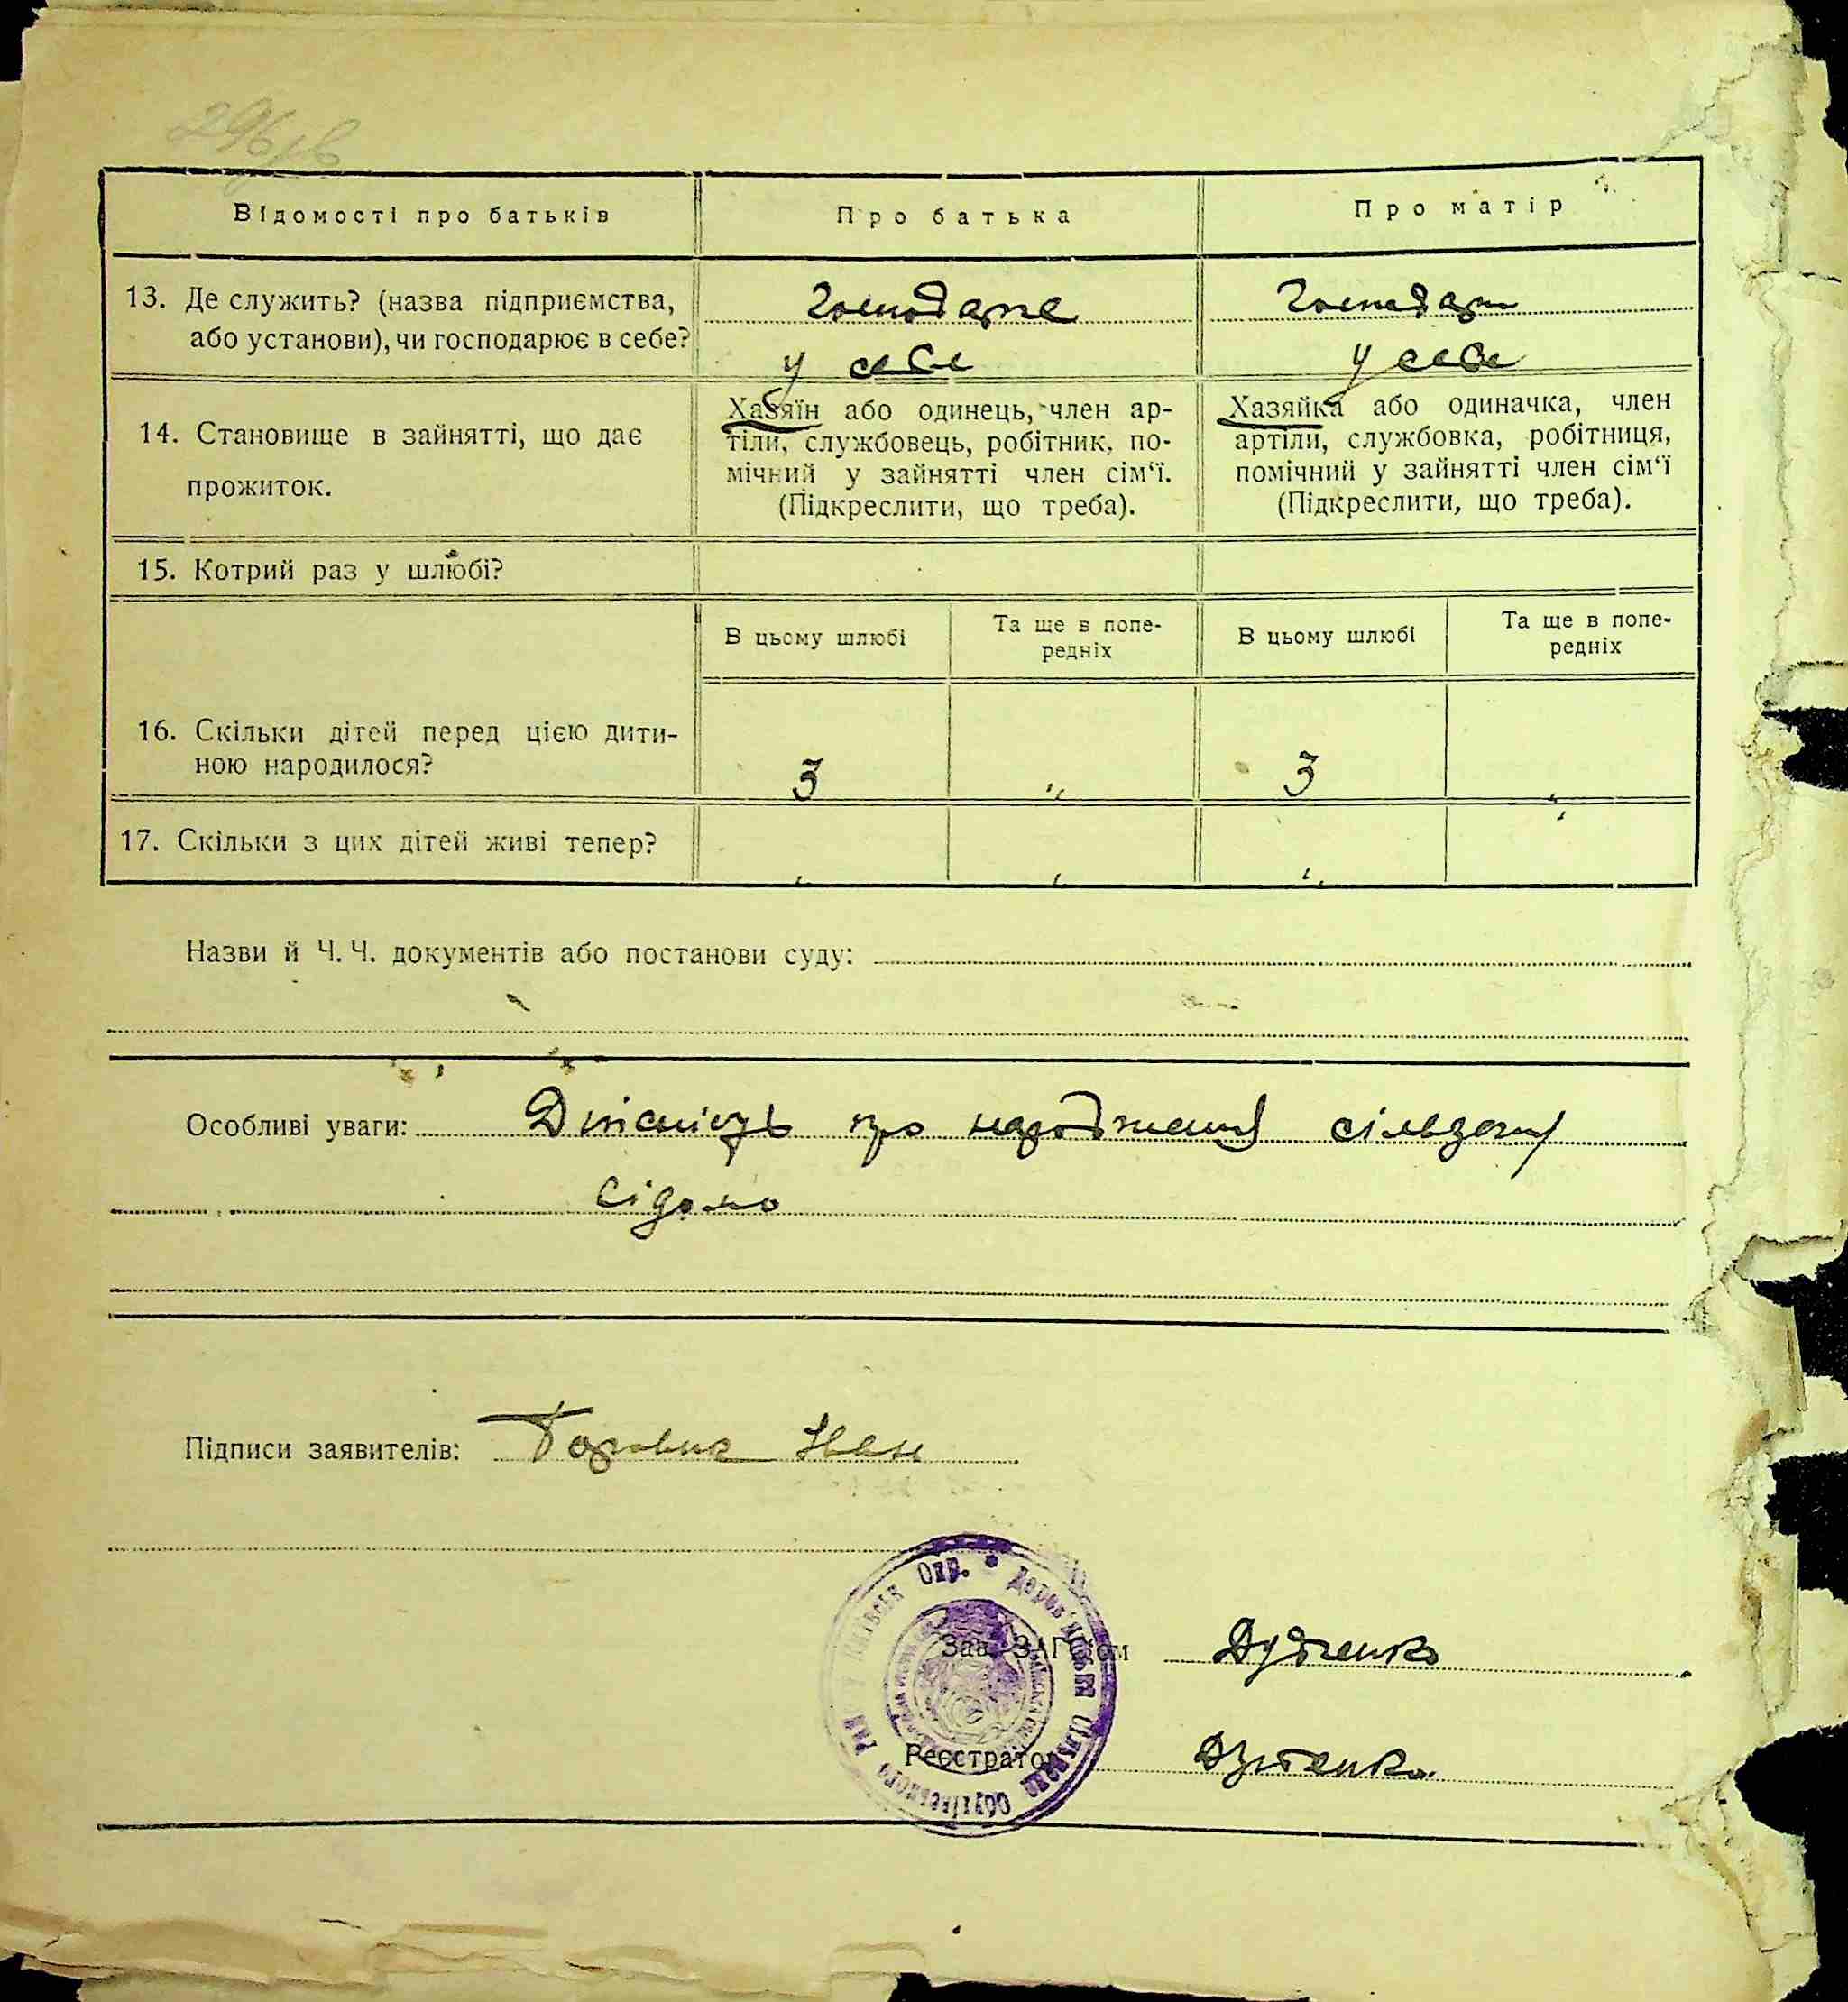 296 зв
Відомості про батьків
Про батька
Про матір
13. Де служить? (назва підприємства,
або установи), чи господарює в себе?
Господарює
у себе
Господарює
у себе
14. Становище в зайнятті, що дає
прожиток.
Хазяїн або одинець, член ар-
тіли, службовець, робітник, по-
мічний у зайнятті член сім'ї.
(Підкреслити, що треба).
Хазяйка або одиначка, член
артіли, службовка, робітниця,
помічний у зайнятті член сім'ї
(Підкреслити, що треба).
15. Котрий раз у шлюбі?
В цьому шлюбі
Та ще в попе-
редніх
В цьому шлюбі
Та ще в попе-
редніх
16. Скільки дітей перед цією дити-
ною народилося?
3
"
3
"
17. Скільки з цих дітей живі тепер?
"
"
"
"
Назви й Ч. Ч. документів або постанови суду:
Особливі уваги: Дійсність про народження сільраді
відомо
Підписи заявителів: Іван
Окр. * Дерев'янськ Сільрада Обухівського Рай. у Київськ
Зав. ЗАГС'ом
Реєстратор